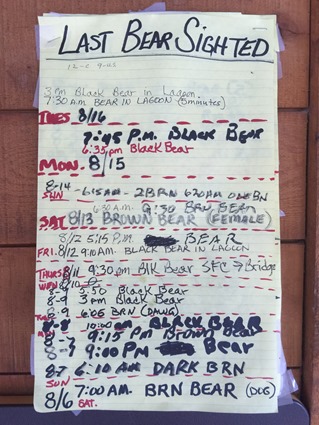 LAST BEAR SIGHTED
3 pm Black Bear in Lagoon
7:30 A.M. BEAR IN LAGOON (5 minutes)
TUES 8/16
7:45 P.M. BLACK BEAR
6:35 pm Black Bear
MON. 8/15
8-14 SUN - 6:15AM - 2BRN 620AM ONE BN
6:30 A.M. 9:30 BRN BEAR
SAT 8/13 BROWN BEAR (FEMALE)
8/12 5:45 P.M. BEAR
FRI. 8/12 9:10AM. BLACK BEAR IN LAGOON
THURS 8/11 9:30 pm Blk Bear SFC → Bridge
WED 8/10
8-9 5:50 Black Bear
8-9 3pm Black Bear
8-9 6:05 BRN (DAWG)
8-8 10:00 BLACK BEAR
8-7 9:15 PM BROWN BEAR
9:00 PM Bear
8-7 6:10 AM DARK BRN
SUN
8/6 SAT. 7:00 AM. BRN BEAR (DOG)